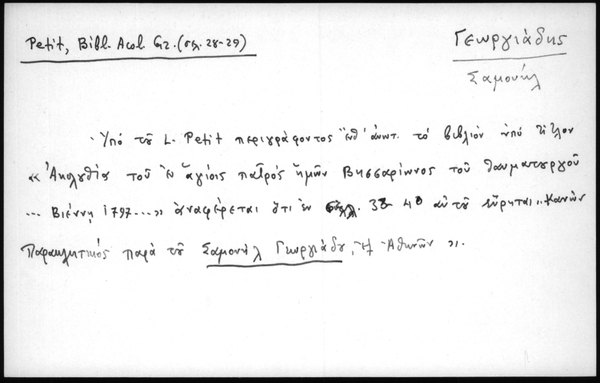 Petit, Bibl. Acol. Gr. (σελ. 28-29)
Γεωργιάδης
Σαμουήλ
Ὑπό τοῦ L. Petit περιγράφοντος ἔνθ' ἀνωτ. τό βιβλίον ὑπό τίτλον
« Ἀκολουθία τοῦ ἐν ἁγίοις πατρός ἡμῶν Βησσαρίωνος τοῦ θαυματουργοῦ
... Βιέννῃ 1797 ... » ἀναφέρεται ὅτι ἐν σελ. 38-40 αὐτοῦ εὕρηται „ Κανών
Παρακλητικός παρά τοῦ Σαμουήλ Γεωργιάδου, ἐξ Ἀθηνῶν ".